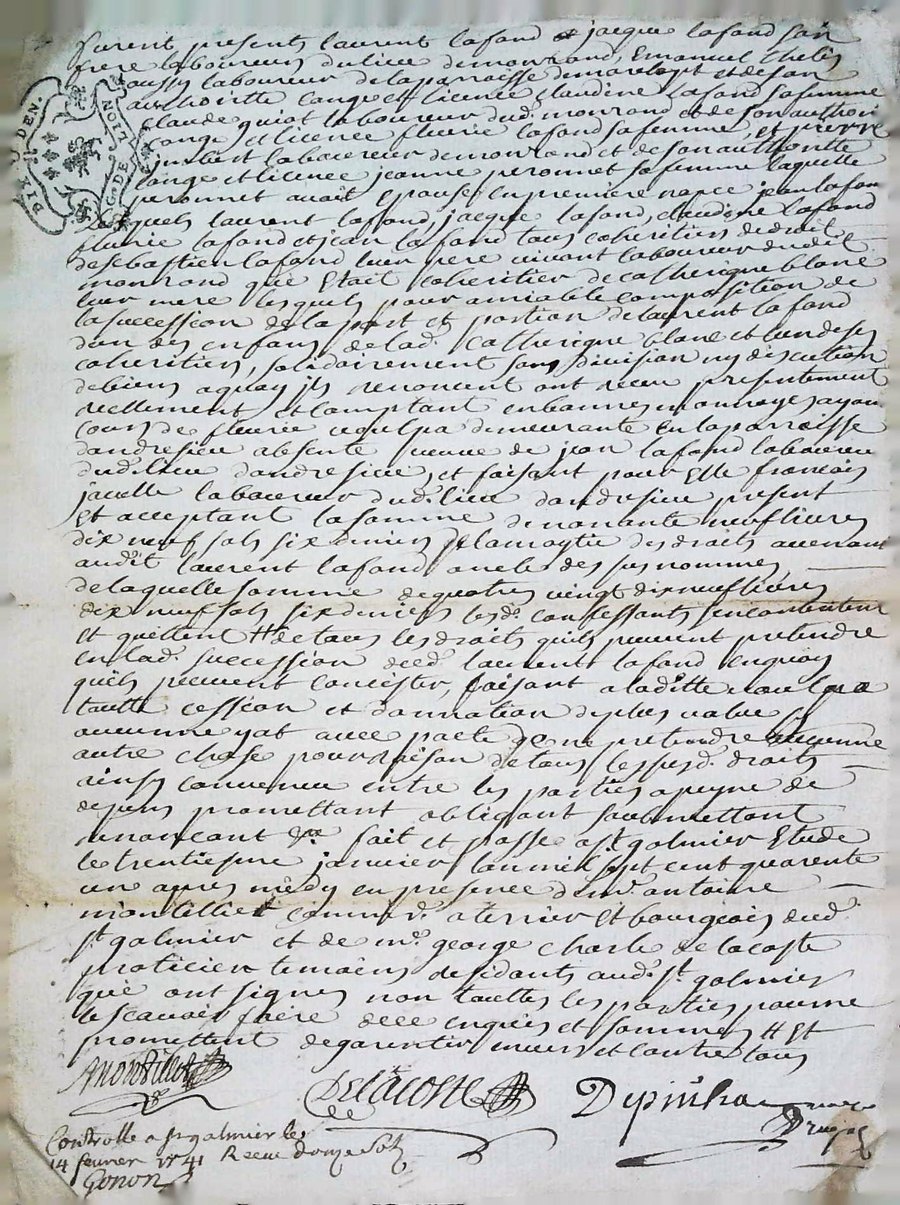 furent presents laurent lafond et jacque lafond son
frere laboureurs du lieu de monrond, Emanuel Thelis
aussy laboureur de la parroisse de marclopt et de son
authoritte conge et licence claudine lafond sa femme
claude guiot laboureur dud. monrond et de son authori
conge et licence fleurie lafond sa femme, et pierre
imbert laboureur de monrond et de son authoritte
conge et licence jeanne peronnet sa femme laquelle
peronnet avait epousé en premiere nopce jean lafon
lesquels laurent lafond, jacque lafond, claudine lafond
fleurie lafond et jean lafond tous coheritiers de droit
de sebastien lafond leur pere vivant laboureur dudit
monrond qui Etait coheritier de catherique blanc
leur mere lesquels pour amiable composition de
la succession de la part et portion de laurent lafond
d'un des enfans de lad. Catherique blanc et l'un de ses
coheritiers, solidairement sans division ny discution
de biens a quoy ils renoncent ont receu presentement
reellement et comptant en bonnes monnoyes ayan
cours de fleurie demeurante en la parroisse
dandresieu absente veuve de jean lafond laboureur
dud. lieu dandresieu, et faisant pour Elle francois
laboureur dud. lieu dandresieu present
et acceptant la somme de nonante neuf livres
dix neuf sols six deniers de la moytié des droits avenant
audit laurent lafond oncle des susnommes
de laquelle somme de quatre vingt dix neuf livres
dix neuf sols six deniers lesd. confessants s'en contentent
et quittent H de tous les droits quils peuvent pretendre
en lad. succession dud. laurent lafond en quoy
quils peuvent concister, faisant a laditte
toutte cession et donnation de plus value
aucune y at avec pacte de ne pretendre aucunne
autre chose pour raison de tous les susd. droits
ainsy convenu entre les parties a peyne de
depens promettant obligeant soubmettant
renoncant &a fait et passé a st galmier Etude
le trentiesme janvier l'an mil sept cent quarente
un apres midy en presence de mr. antoine
montelliet commire. a terrier et bourgeois dud.
st galmier et de me. george charle de lacoste
praticien temoins residants aud. st galmier
qui ont signes non touttes les parties pour ne
le scavoir faire de ce enquis et sommes H Et
promettent de garentir envers et contre tous
AMontilliet
Delacoste
Controllé a st galmier le
14 fevrier 1741 Receu douze sols
Gonon
DIX DEN.
G. DE LION